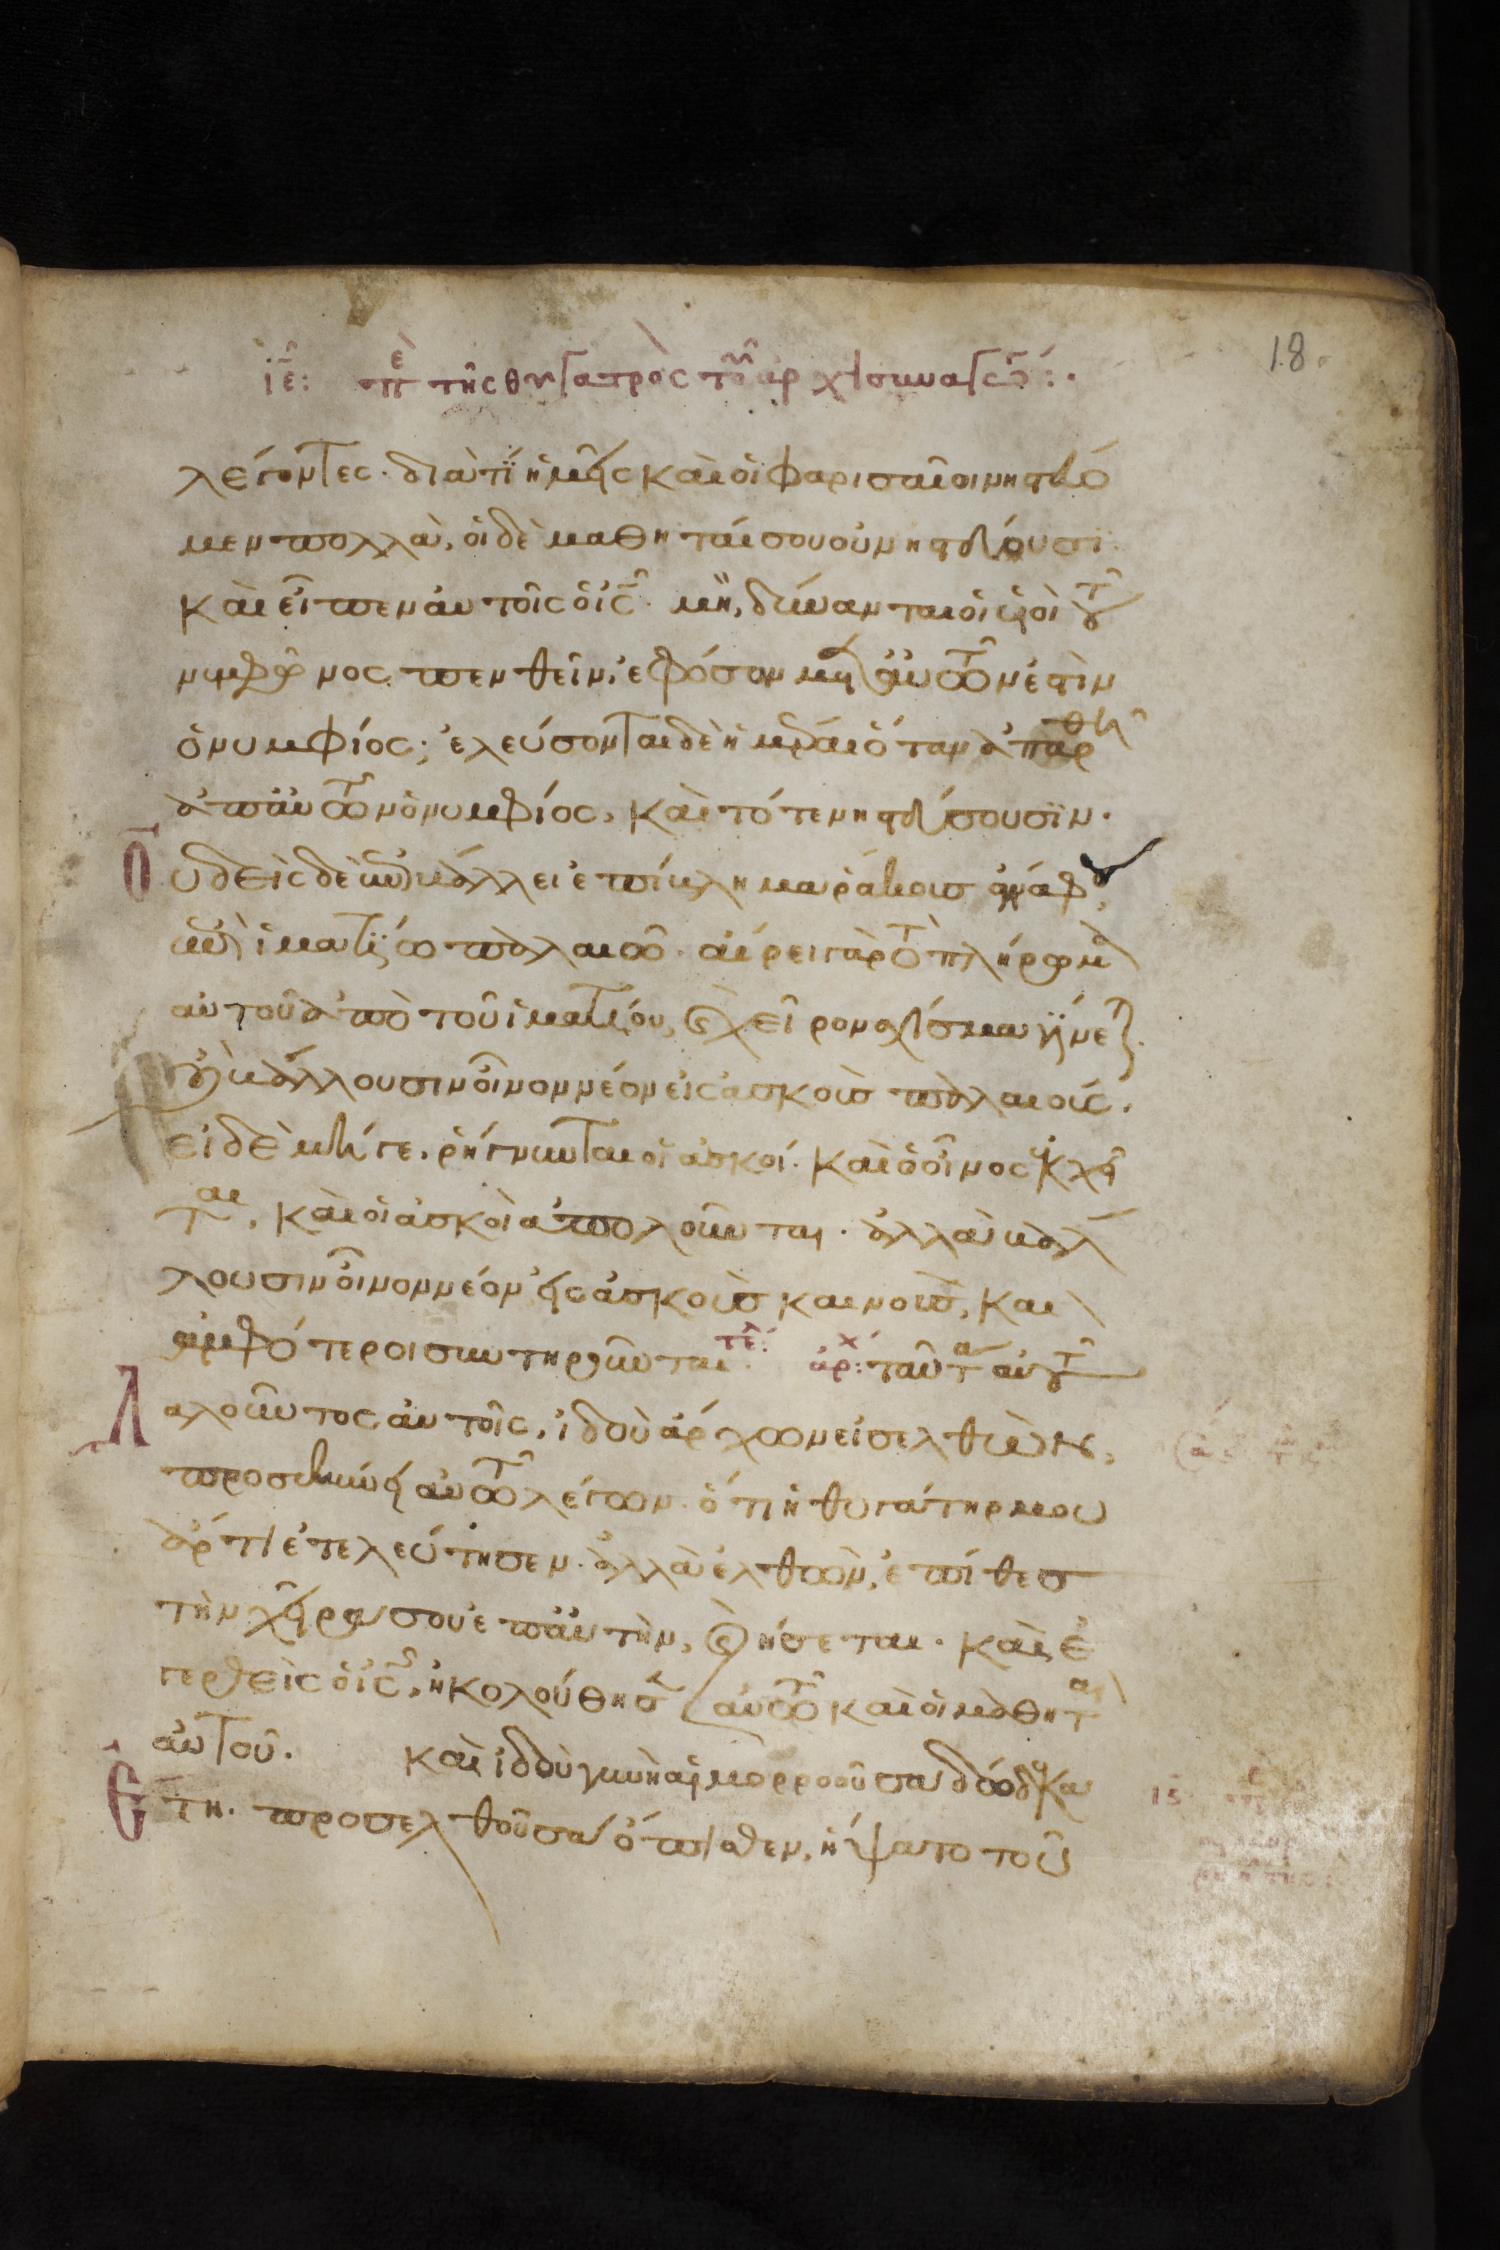 18
ιε: πε της θυγατρὸς τοῦ ἀρχισυναγώ:·
λέγοντες· διατί ἡμεῖς καὶ οἱ φαρισαῖοι νηστεύο
μεν πολλὰ, οἱ δὲ μαθηταί σου οὐ νηστεύουσι·
καὶ εἶπεν αὐτοῖς ὁ ις· μὴ, δύνανται οἱ υἱοὶ τοῦ
νυμφῶνος πενθεῖν, ἐφόσον μετ αὐτῶν ἐστὶν
ὁ νυμφίος; ἐλεύσονται δὲ ἡμέραι ὅταν ἀπαρθῆ
ἀπ αὐτῶν ὁ νυμφίος, καὶ τότε νηστεύσουσιν·
Οὐδεὶς δὲ ἐπιβάλλει ἐπίβλημα ῥάκους ἀγνάφου
ἐπὶ ἱματίω παλαιῶ· αἴρει γὰρ τὸ πλήρωμα
αὐτοῦ ἀπὸ τοῦ ἱματίου, καὶ χεῖρον σχίσμα γίνεται·
οὐδὲ βάλλουσιν οἶνον νέον εἰς ἀσκοὺς παλαιούς·
εἰ δὲ μήγε, ῥήγνυνται οἱ ἀσκοί· καὶ ὁ οἶνος ἐκχεῖ
ται, καὶ οἱ ἀσκοὶ ἀπολοῦνται· ἀλλὰ βάλ
λουσιν οἶνον νέον εἰς ἀσκοὺς καινοὺς, καὶ
ἀμφότεροι συντηροῦνται τε: ἀρχ: ταῦτα αὐτοῦ
Λαλοῦντος αὐτοῖς, ἰδοὺ ἄρχων εἰσελθὼν,
προσεκύνει αὐτῶ λέγων· ὅτι ἡ θυγάτηρ μου
ἄρτι ἐτελεύτησεν· ἀλλὰ ἐλθὼν, ἐπίθες
τὴν χεῖρα σου ἐπ αὐτὴν, καὶ ζήσεται· καὶ ἐ
γερθεὶς ὁ ις, ἠκολούθησεν αὐτῶ καὶ οἱ μαθηταὶ
αὐτοῦ· καὶ ἰδοὺ γυνὴ αἱμορροοῦσα δώδεκα
Ἔτη· προσελθοῦσα ὄπισθεν, ἥψατο τοῦ